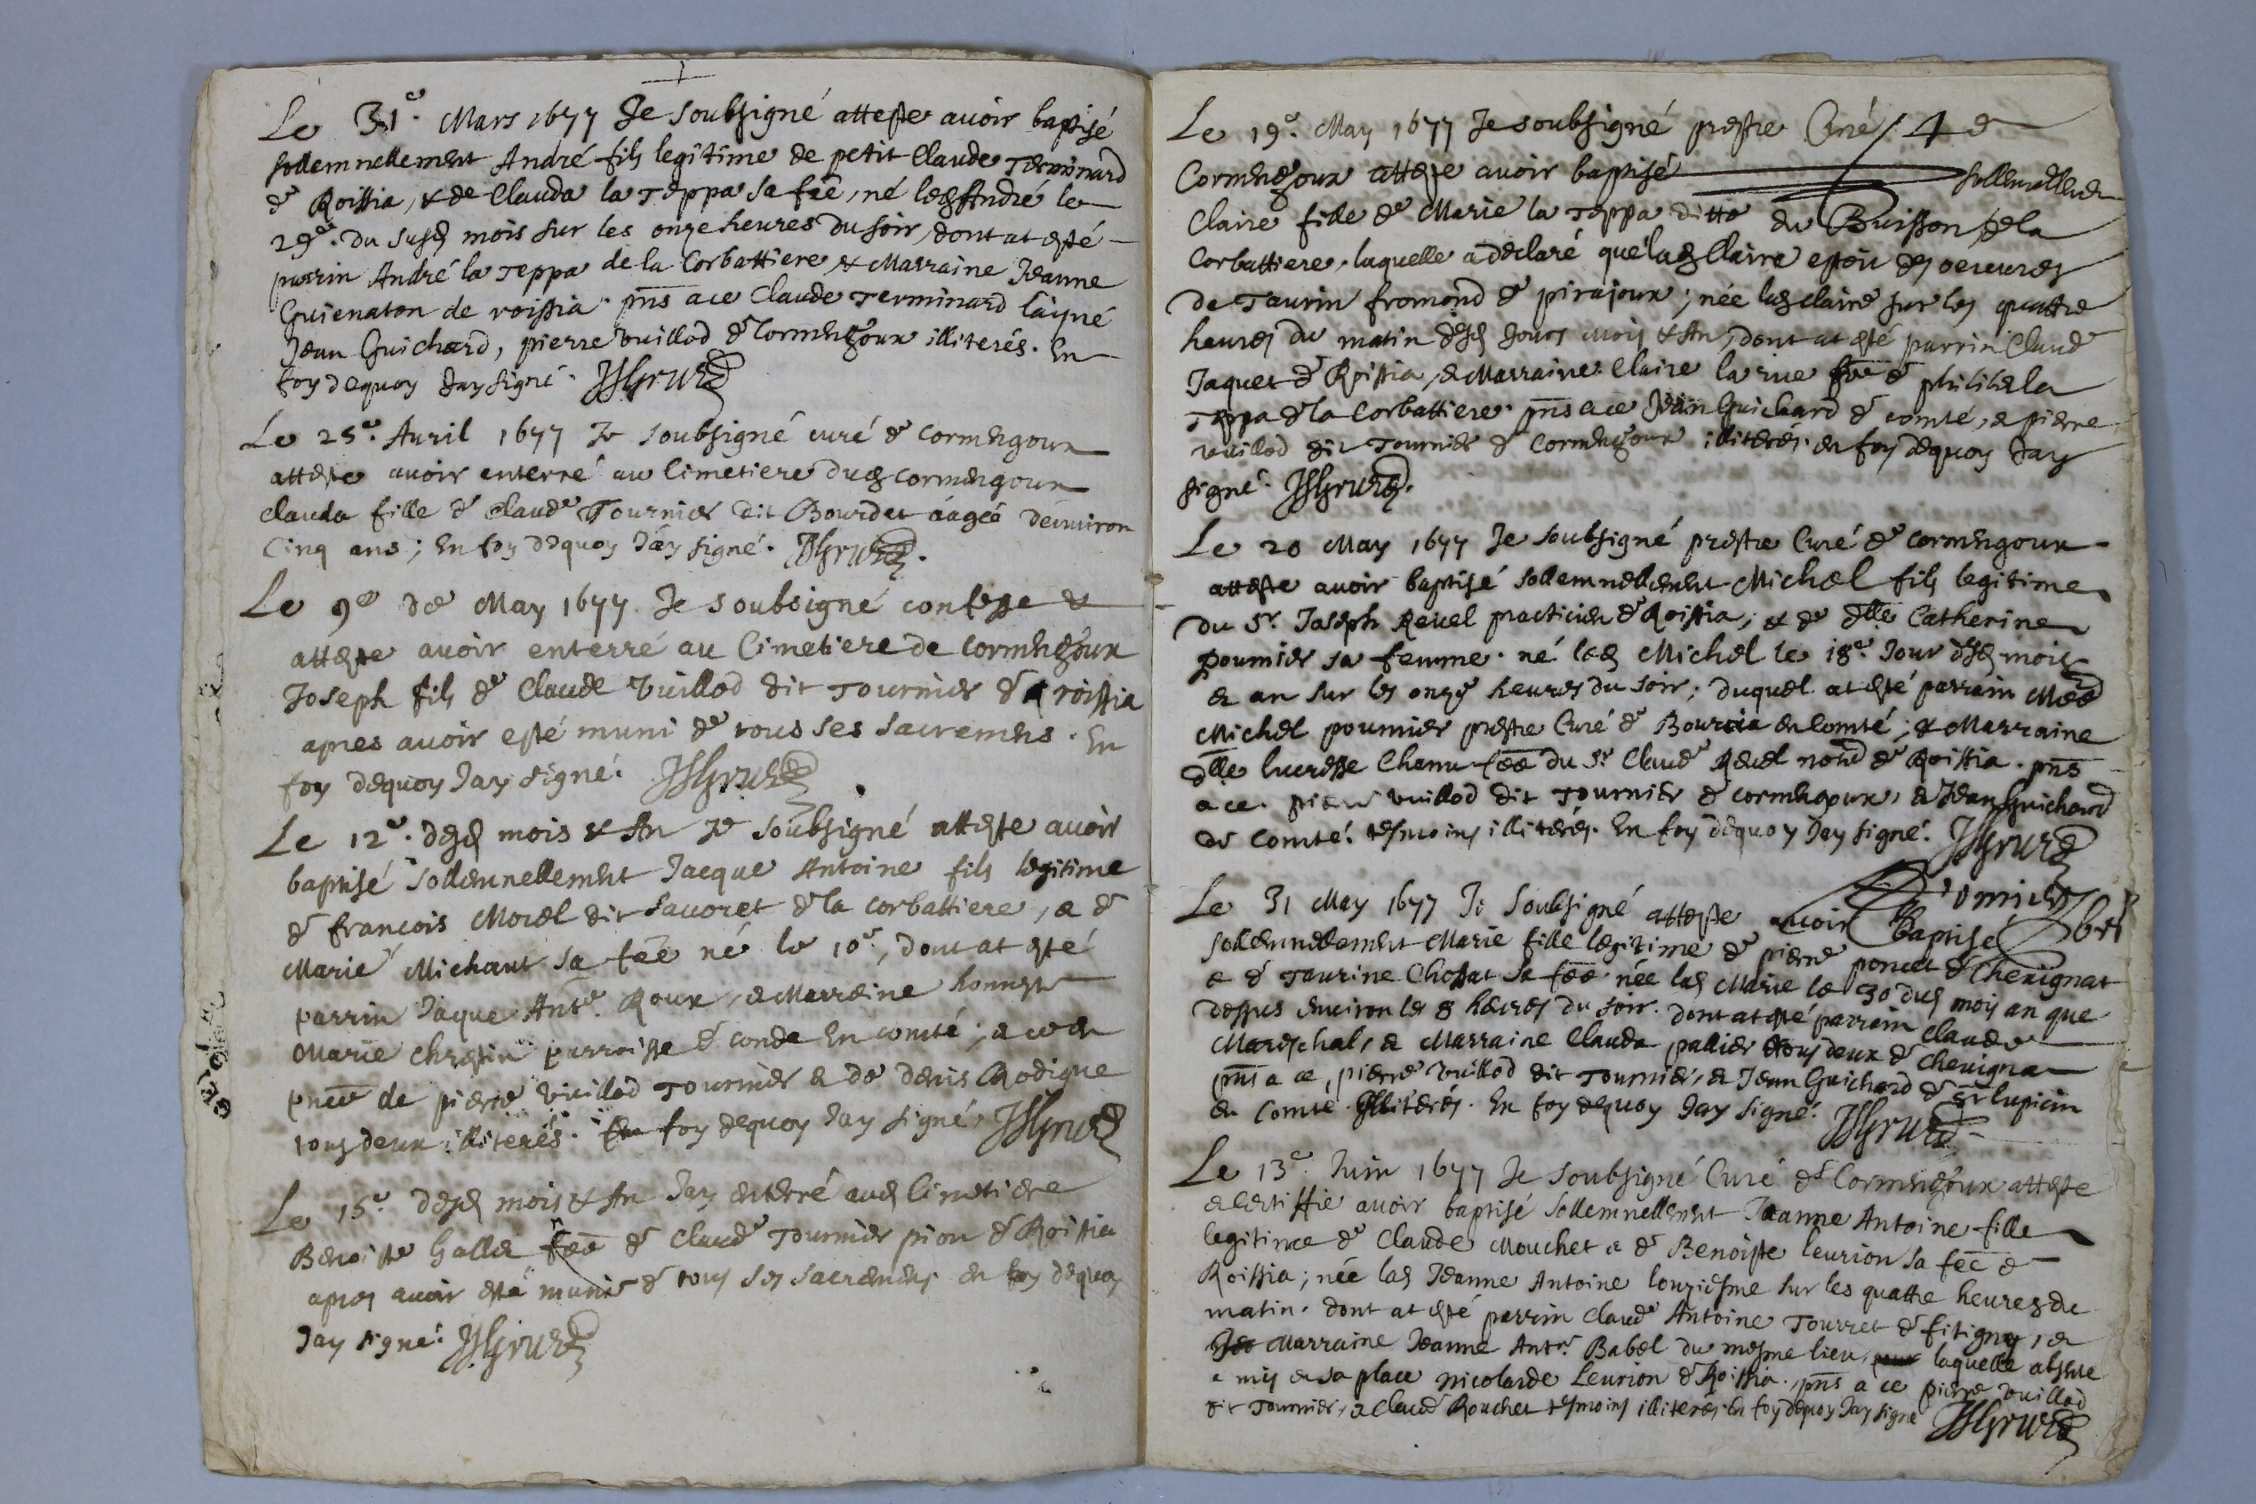 Le 31e. Mars 1677 Je soubsigné atteste avoir baptisé
sollemnellement André fils legitime de petit Claude Terminard
de Roissia, & de Clauda la Teppa sa fẽe, né led André le
29e. du susd mois sur les onze heures du soir, dont at esté
parrin André la Teppa de la Corbattiere & Marraine Jeanne
Guienaton de roissia. pñs a ce Claude Terminard laisné
Jean Guichard, pierre Vuillod de Cormengoux illiterés. En
foy dequoy Jay signé.
Le 25e. Avril 1677 Je soubsigné curé de Cormengoux
atteste avoir enterré au Cimetiere dud Cormengoux
Clauda fille de Claude Tournier dit Bourdet aagée denviron
Cinq ans; En foy dequoy Jay signé.
Le 9e de May 1677. Je soubsigné confesse &
atteste avoir enterré au Cimetiere de Cormengoux
Joseph fils de Claude Vuillod dit Tournier de roissia
apres avoir esté muni de tous ses sacremens. En
foy dequoy Jay signé.
Le 12e. desd mois & An Je soubsigné atteste avoir
baptisé sollennellement Jacque Antoine fils legitime
de francois Morel dit Savoret de la Corbattiere, & de
Marie Michaut sa fẽe né le 10e, dont at esté
parrin Jaque Ante. Roux, & Marraine honneste
Marie Chrestin parroisse de Conde En comté; a ce en
pñce de pierre Vuillod Tournier & de denis Rodigue
tous deux illiterés. En foy dequoy Jay signé.
Le 15e. desd mois & An Jay enterré aud Cimetiere
Benoiste Galler fẽe de Claude Tournier pion de Roissia
apres avoir esté munie de tous ses sacremens en foy dequoy
Jay signé.
Le 19e. May 1677 Je soubsigné prestre Curé 4 de
Cormengoux atteste avoir baptisé sollemnellement
Claire fille de Marie la Teppa ditte du Buisson de la
Corbattiere, laquelle a declaré que lad Claire estoit des oeuvres
de Taurin fromond de pirajoux; née lad claire sur les quattre
heures du matin desd Jours mois & An, dont at esté parrin Claude
Jaquet de Roissia, & Marraine Claire la rue fẽe de philibe la
Teppa de la Corbattiere. pñs a ce Jean Guichard de comté, & pierre
Vuillod dit Tournier de Cormengoux illiterés. en foy dequoy Jay
signé.
Le 20 May 1677 Je soubsigné prestre Curé de Cormengoux
atteste avoir baptisé sollemnellement Michel fils legitime
du Sr. Joseph Revel practicien de Roissia, & de dlle Catherine
poumier sa femme. né led Michel le 18e. Jour desd mois
& an sur les onze heures du soir; duquel at esté parrain
Michel poumier prestre Curé de Bourcia en Comté; & Marraine
dlle lucresse Chanu fẽe du Sr. Claude Revel de Roissia. pñs
a ce. pierre Vuillod dit Tournier de Cormengoux, & Jean Guichard
de Comté. tesmoins illiterés. En foy dequoy Jay signé.
Le 31 May 1677 Je Soubsigné atteste avoir baptisé
sollennellement Marie fille legitime de pierre poncet de Chevignat
& de Taurine Chossat sa fẽe née lad Marie le 30 dud mois an que
dessus environ les 8 heures du soir. dont at esté parrain Claude
Mareschal, & Marraine Clauda pallier tous deux de Chevigna
pñs a ce, pierre Vuillod dit Tournier, & Jean Guichard de St lupicin
en Comte. Illiterés. En foy dequoy Jay signé.
Le 13e. Juin 1677 Je soubsigné Curé de Cormengoux atteste
& certiffie avoir baptisé sollemnellement Jeanne Antoine fille
legitime de Claude Mouchet & de Benoiste leurion sa fẽe de
Roissia; née lad Jeanne Antoine lonziesme sur les quattre heures du
matin. dont at esté parrin Claude Antoine Tourret de fitigny, &
Marraine Jeanne Ante. Babel du mesme lieu, laquelle absente
a mis en sa place nicolarde Leurion de Roissia. pñs a ce pierre Vuillod
dit Tournier, & Claude Rouchet tesmoins illiterés En foy dequoy Jay signé